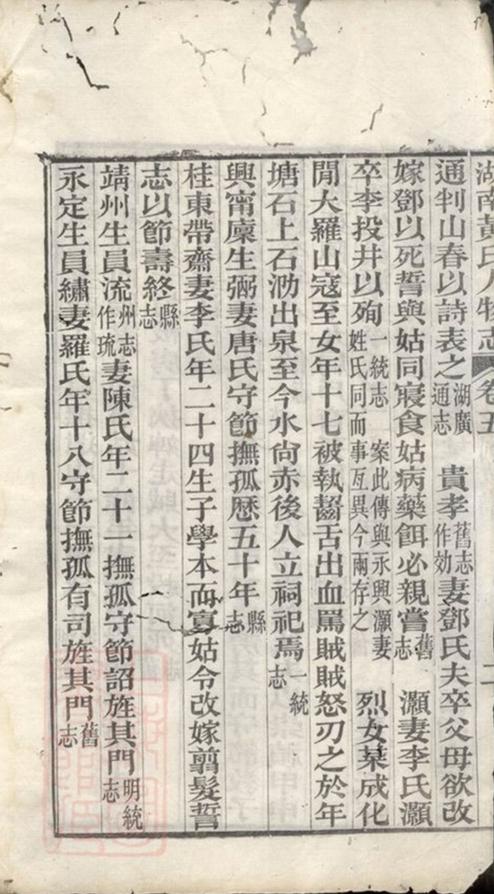 湖南黃氏人物志 卷五
通判山春以詩表之湖廣通志 貴孝舊志作効妻鄧氏夫卒父母欲改
嫁鄧以死誓與姑同寢食姑病藥餌必親嘗舊志 灝妻李氏灝
卒李投井以殉一統志 案此傳與永興灝妻姓氏同而事亙異今兩存之 烈女某成化
閒大羅山寇至女年十七被執齧舌出血罵賊賊怒刃之於年
塘石上石泐出泉至今水尙赤後人立祠祀焉一統志
興甯廩生弼妻唐氏守節撫孤歴五十年縣志
桂東帶齋妻李氏年二十四生子學本而寡姑令改嫁翦髮誓
志以節壽終縣志
靖州生員流州志作琉妻陳氏年二十一撫孤守節詔旌其門明統志
永定生員繡妻羅氏年十八守節撫孤有司旌其門舊志